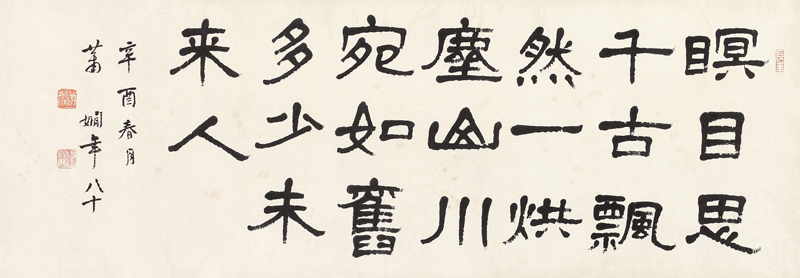 瞑目思
千古飄
然一烘
塵山川
宛如舊
多少未
来人
辛酉春月
蕭嫻年八十